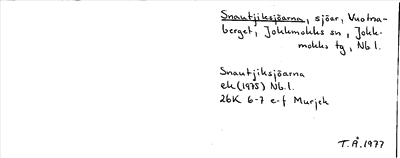 Snautjiksjöarna, sjöar, Vuotna-
berget, Jokkmokks sn, Jokk-
mokks tg, Nb l.
Snautjiksjöarna
ek (1975) Nb.l.
26K 6-7 e-f Murjek
T.Å. 1977